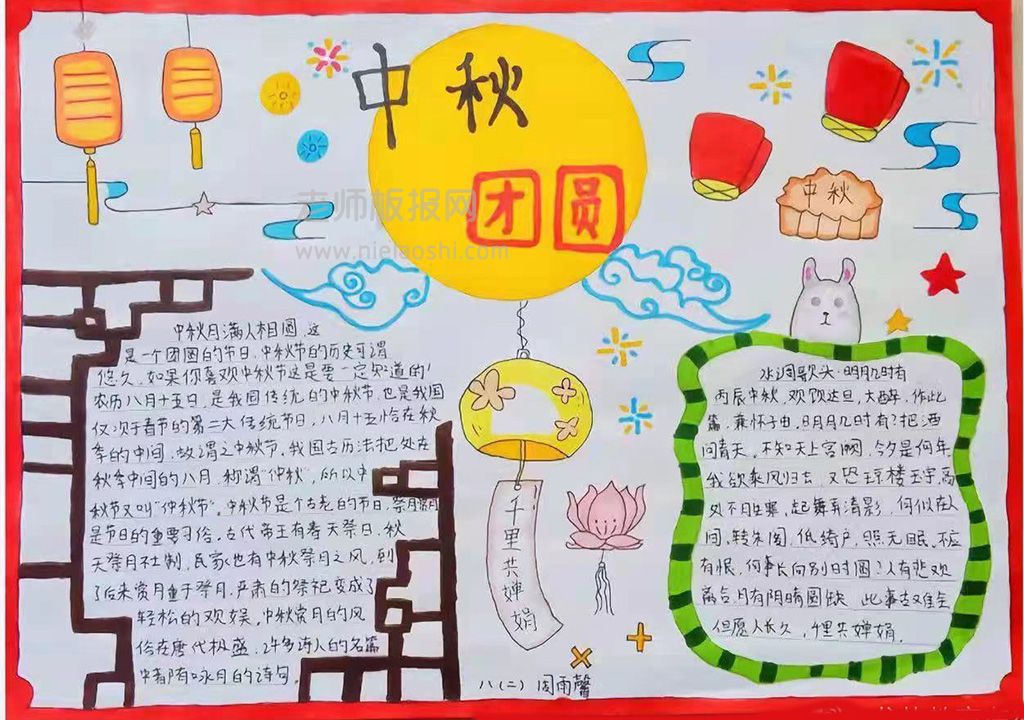 中秋
团员
老师板报网
www.nielaoshi.com
中秋
中秋月满人相圆、这
是一个团圆的节日，中秋节的历史可谓
悠久，如果你喜欢中秋节这是要一定知道的！
农历八月十五日，是我国传统的中秋节，也是我国
仅次于春节的第二大传统节日，八月十五恰在秋
季的中间，故谓之中秋节，我国古历法把处在
秋季中间的八月，称谓“仲秋”，所以中
秋节又叫“仲秋节”。中秋节是个古老的节日，祭月赏月
是节日的重要习俗。古代帝王有春天祭日，秋
天祭月社制，民家也有中秋祭月之风，到
了后来赏月重于祭月，严肃的祭祀变成了
轻松的欢娱。中秋赏月的风
俗在唐代极盛，许多诗人的名篇
中都有咏月的诗句。
千里共婵娟
水调歌头·明月几时有
丙辰中秋，欢饮达旦，大醉，作此
篇，兼怀子由，明月几时有？把酒
问青天，不知天上宫阙，今夕是何年
我欲乘风归去，又恐琼楼玉宇，高
处不胜寒，起舞弄清影，何似在人
间，转朱阁，低绮户，照无眠。不应
有恨，何事长向别时圆？人有悲欢
离合，月有阴晴圆缺，此事古难全
但愿人长久，千里共婵娟。
八（二）周雨馨